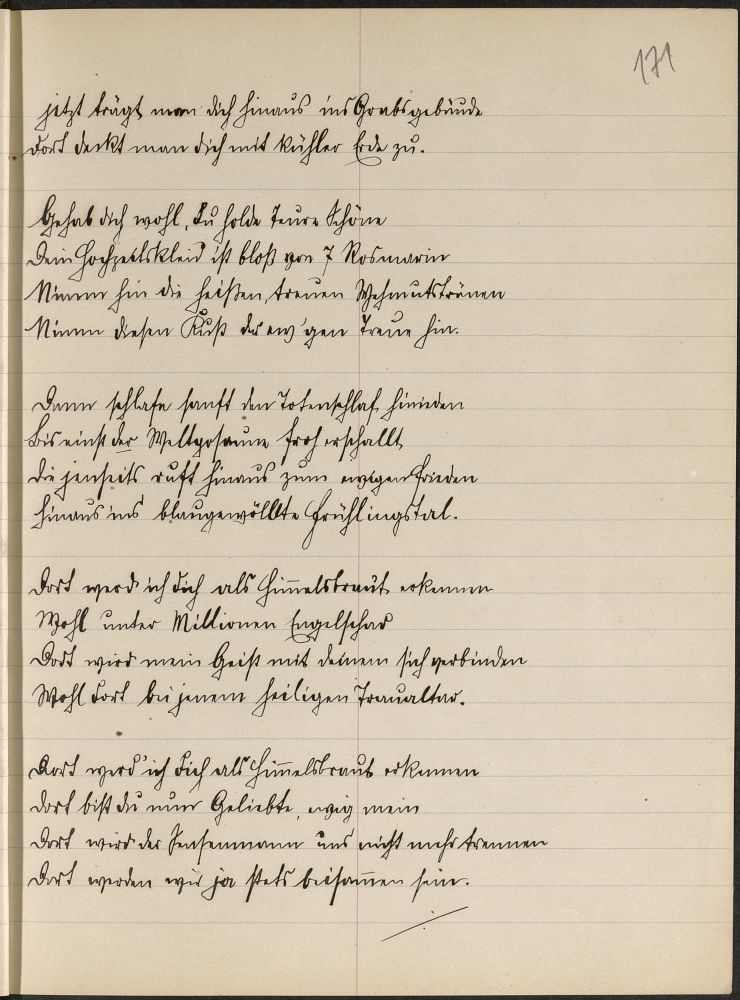 171
jetzt trägt man dich hinaus ins Grabsgebäude
Dort deckt man dich mit kühler Erde zu.
Gehab dich wohl, du holde Teure Schöne
Dein Hochzeitskleid ist bloß von 7 Rosmarin
Nimm hin die heißen, treuen Wehmutstränen
Nimm diesen Kuß der ew'gen Treue hin.
Dann schlafe sanft den Totenschlaf hinieden
Bis einst der Weltposaune froh erschallt
Die jenseits ruft hinaus zum ewigen Frieden
hinaus ins blaugewöllbte Frühlingstal.
Dort werd ich dich als Him̄elsbraut erkennen
Wohl unter Millionen Engelschar
Dort wird mein Geist mit deinem sich verbinden
Wohl dort bei jenem heiligen Traualtar.
Dort werd' ich dich als Him̄elsbraut erkennen
dort bist du nun Geliebte, ewig mein
Dort wird der Sensenmann uns nicht mehr trennen
Dort werden wir ja stets beisam̄en sein.